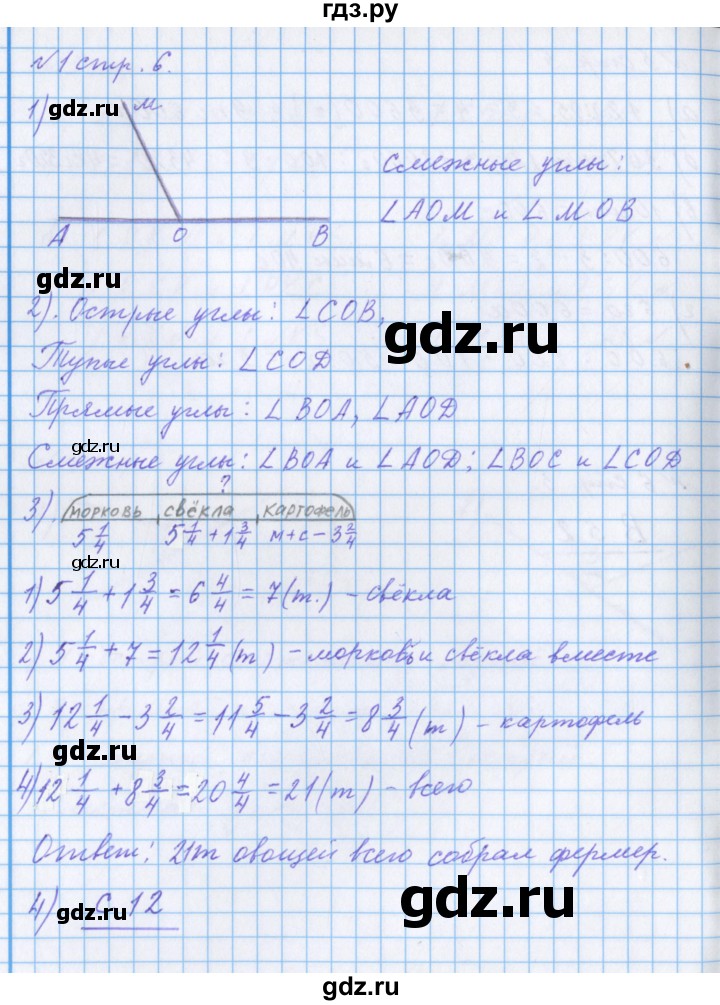 гдз.ру
№1 стр. 6.
1)
gdz.ru
М
А О В
Смежные углы:
∠АОМ и ∠МОВ
gdz.ru
2). Острые углы: ∠СОВ,
gdz.ru
Тупые углы: ∠СОD
Прямые углы: ∠ВОА, ∠АОD
gdz.ru
Смежные углы: ∠ВОА и ∠АОD; ∠ВОС и ∠СОD
?
3). морковь свёкла картофель
5 1/4 5 1/4 + 1 3/4 м+с – 3 2/4
gdz.ru
1) 5 1/4 + 1 3/4 = 6 4/4 = 7 (т.) – свёкла
2) 5 1/4 + 7 = 12 1/4 (т) – морковь и свёкла вместе
3) 12 1/4 – 3 2/4 = 11 5/4 – 3 2/4 = 8 3/4 (т) – картофель
gdz.ru
4) 12 1/4 + 8 3/4 = 20 4/4 = 21 (т) – всего
Ответ: 21т овощей всего собрал фермер.
4) с. 12
gdz.ru
gdz.ru
gdz.ru